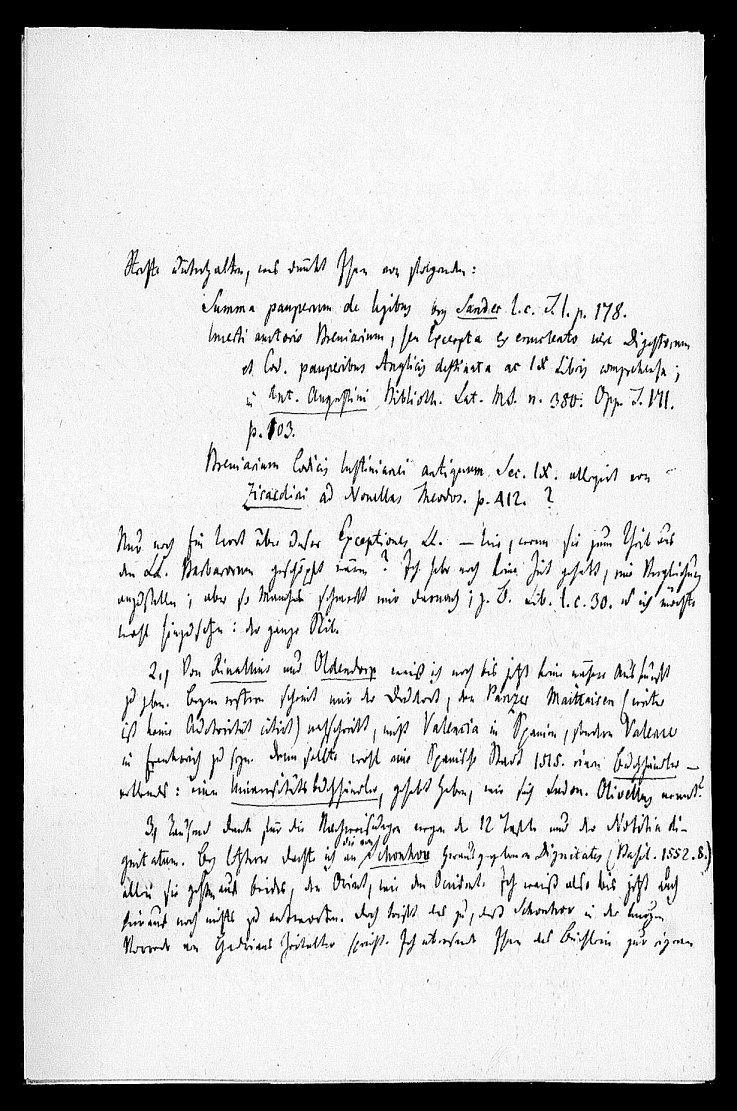 Stoffe unterhalten, was dünkt Ihnen von folgenden:
Summa pauperum de legibus bey Sander l. c. T. I. p. 178.
Incerti auctoris Breviarium, seu Excerpta ex enucleato iure Digestorum
et Cod. pauperibus Anglicis destinata ac IX Libris comprehensa;
in Ant. Augustini Biblioth. Lat. MS. n. 380. Opp. T. VII.
p. 103.
Breviarium Codicis Iustinianei antiquum Sec. IX. allegirt von
Zirardini ad Novellas Theodos. p. 412. ?
Nur noch Ein Wort über unser Exceptiones LL. — wie, wenn sie zum Theil aus
den LL. Barbarorum geschöpft wären? Ich habe noch keine Zeit gehabt, eine Vergleichung
anzustellen; aber so Manches schmeckt mir darnach; z. B. Lib. I. c. 30. und ich möchte
wohl hinzusetzen: der ganze Stil.
2., Von Rivallius und Oldendorp weiß ich noch bis jetzt keine nähere Auskunft
zu geben. Beym erstern scheint mir der Druckort, den Panzer Maittairen (weiter
ist keine Auctorität citirt) nachschreibt, nicht Valencia in Spanien, sondern Valence
in Frankreich zu seyn. Denn sollte wohl eine Spanische Stadt 1515. einen Buchhändler —
vollends: einen Universitätsbuchhändler, gehabt haben, wie sich Ludov. Olivellus nennt?
3., Tausend Dank für die Nachweisungen wegen der 12 Tafeln und der Notitia di-
gnitatum. Bey letzterer dachte ich an die von Schonhov herausgegebenen Dignitates (Basil. 1552. 8.)
allein sie gehen auf beides, den Orient, wie den Occident. Ich weiß also bis jetzt auch
hierauf noch nichts zu antworten. Doch trifft das zu, daß Schonhov in der kurzen
Vorrede von Hadrians Zeitalter spricht. Ich übersende Ihnen das Büchlein zur eigenen